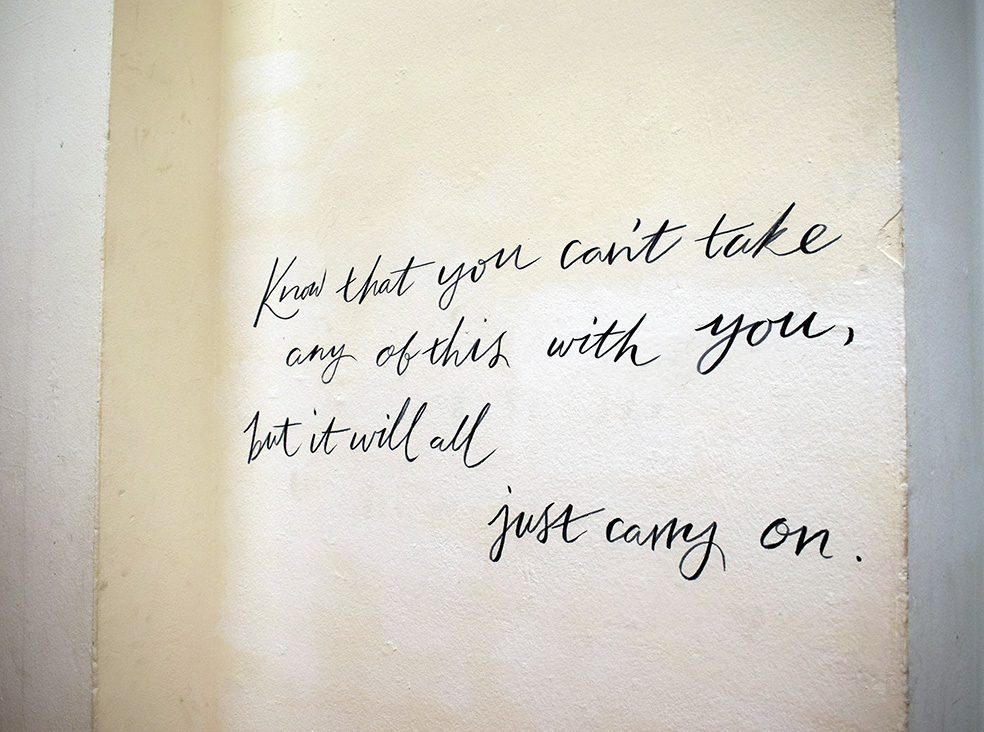 Know that you can't take
any of this with you,
but it will all
just carry on.